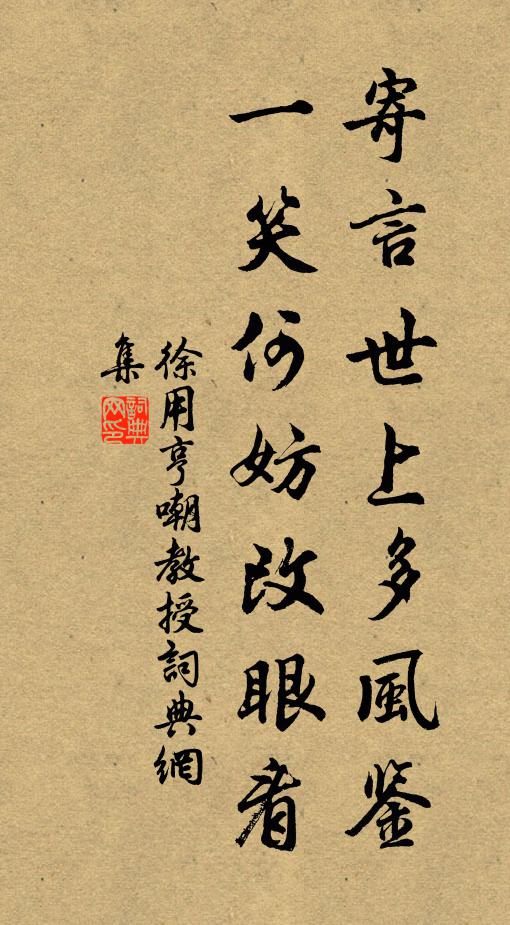 寄言世上多風鉴
一笑何妨改眼看
徐用亨嘲教授詞典網
集
詞典网印